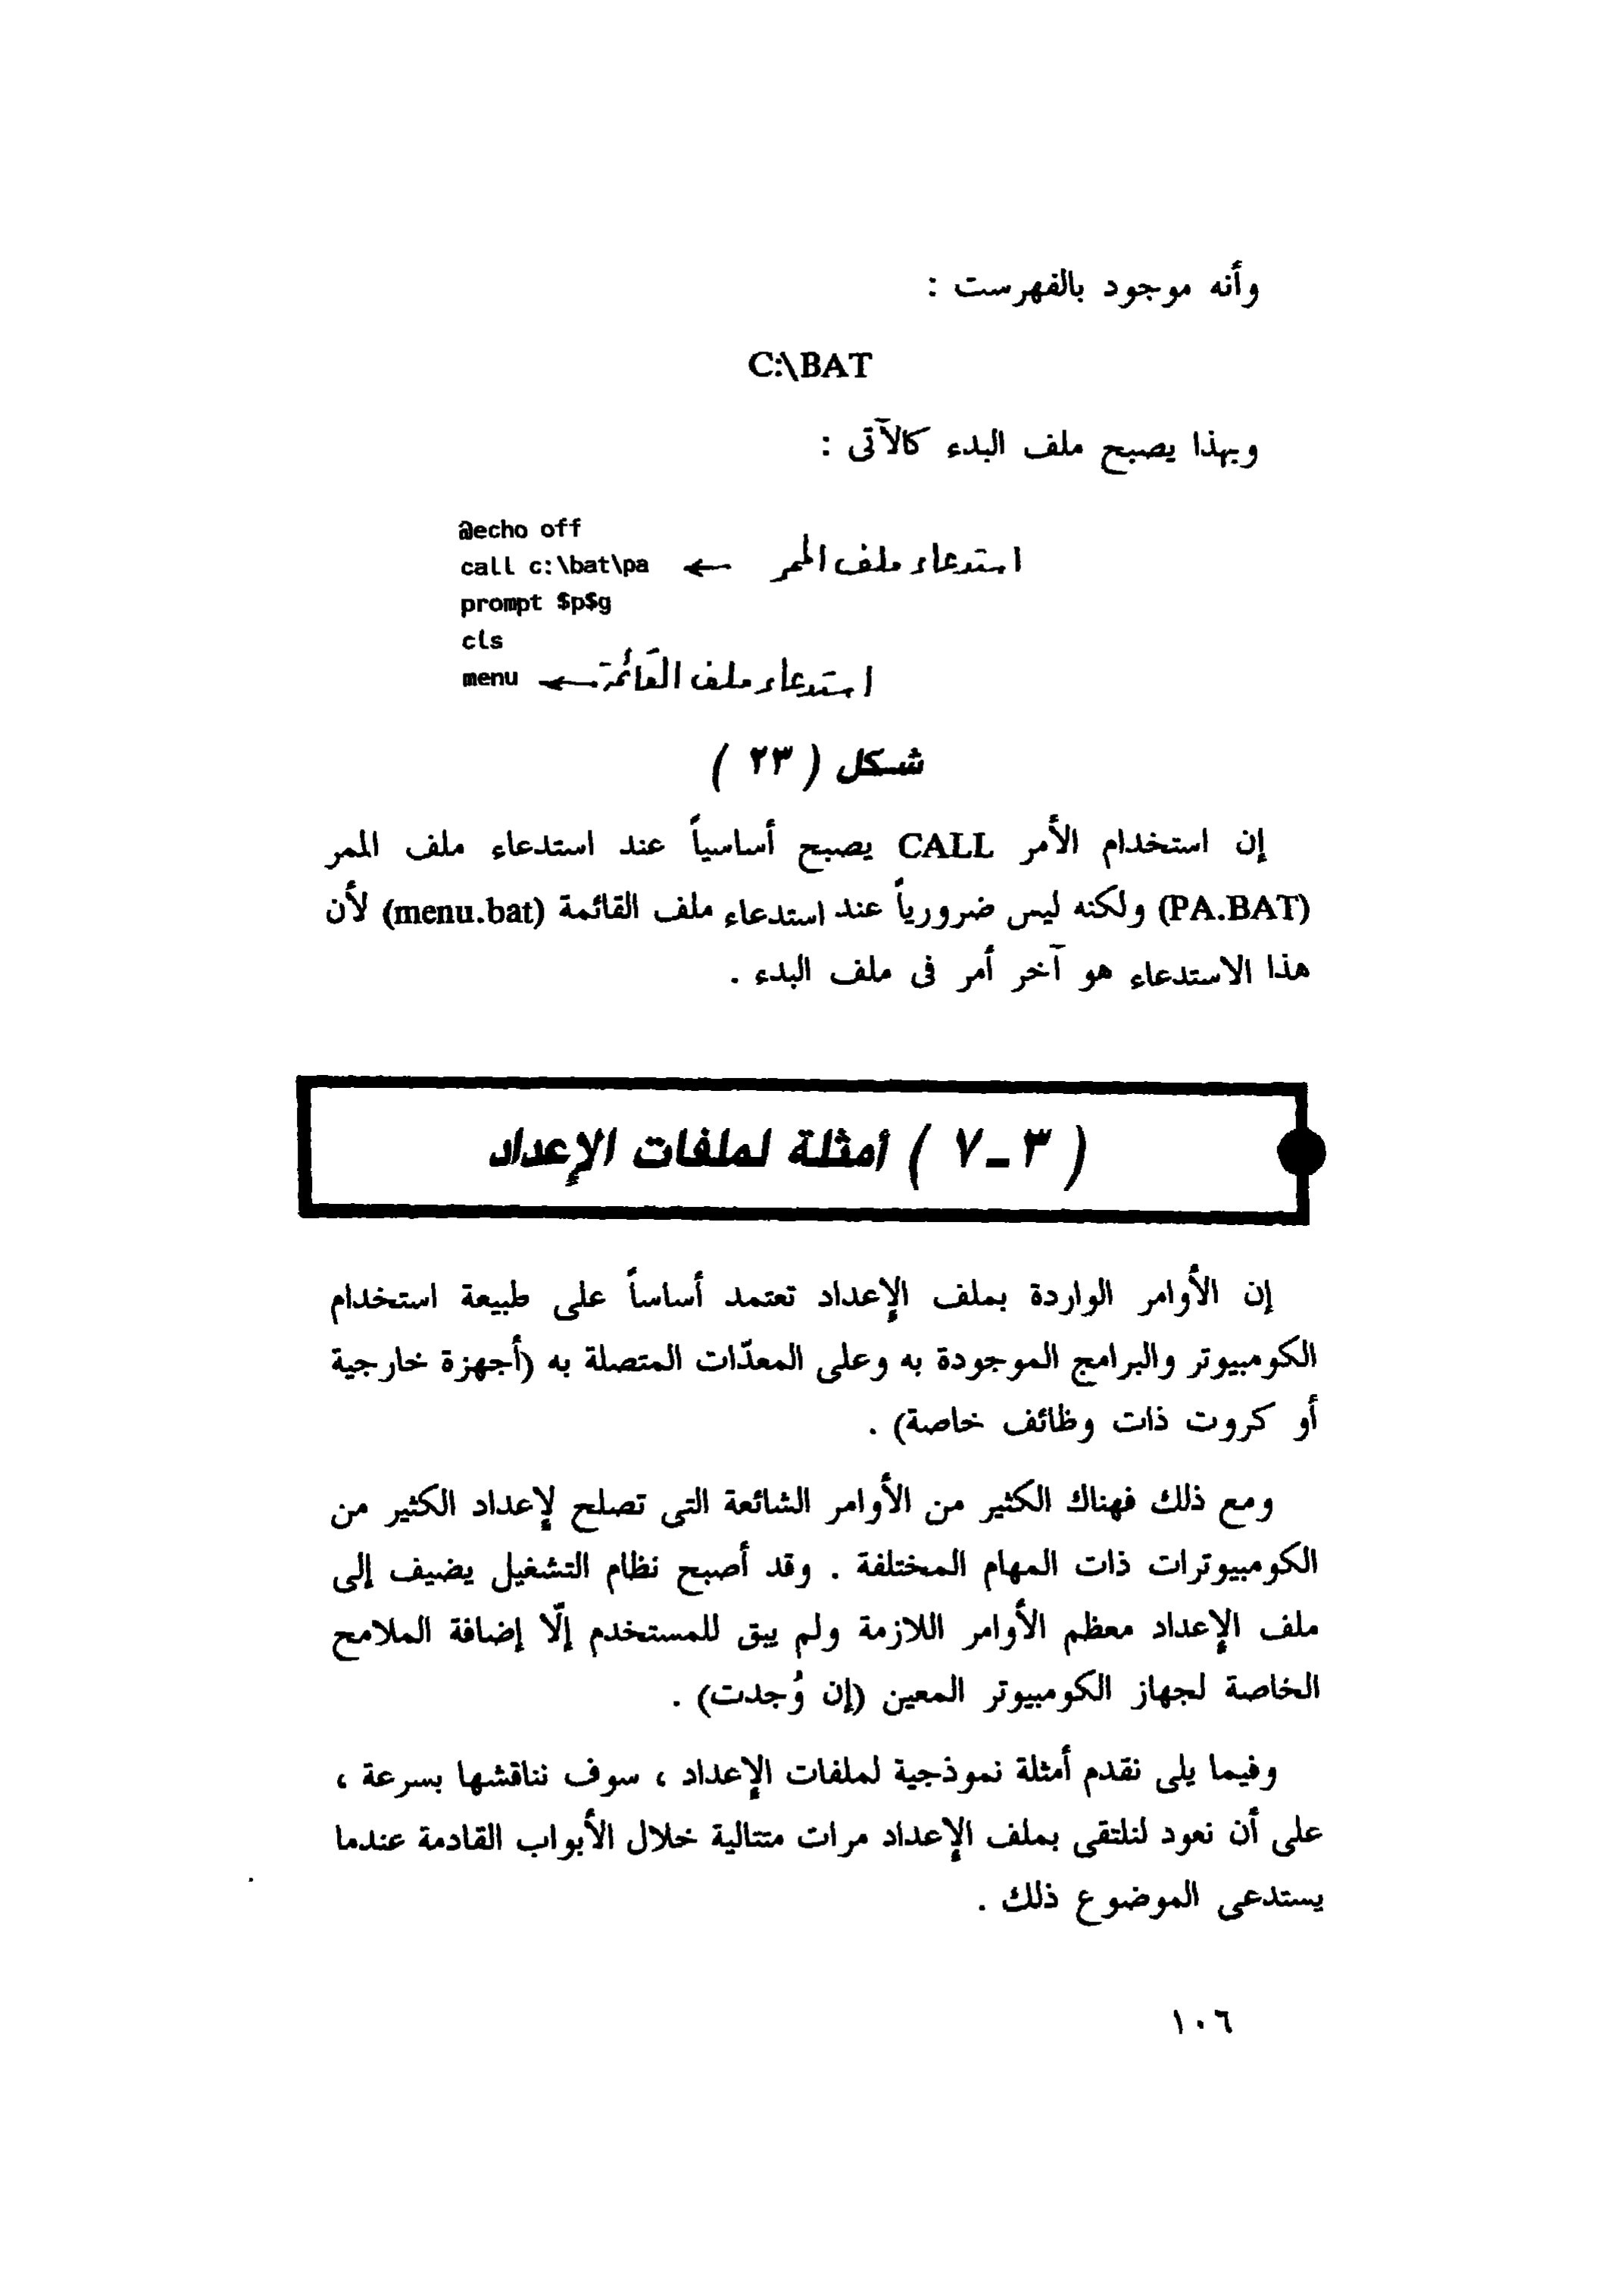 وأنه موجود بالفهرست :
C:\BAT
وبهذا يصبح ملف البدء كالآتى :
@echo off
call c:\bat\pa ← استدعاء ملف الممر
prompt $p$g
cls
menu ← استدعاء ملف القائمة
شكل ( ٢٣ )
إن استخدام الأمر CALL يصبح أساسياً عند استدعاء ملف الممر
(PA.BAT) ولكنه ليس ضرورياً عند استدعاء ملف القائمة (menu.bat) لأن
هذا الاستدعاء هو آخر أمر فى ملف البدء .
( ٣ ـ ٧ ) أمثلة لملفات الإعداد
إن الأوامر الواردة بملف الإعداد تعتمد أساساً على طبيعة استخدام
الكومبيوتر والبرامج الموجودة به وعلى المعدّات المتصلة به (أجهزة خارجية
أو كروت ذات وظائف خاصة) .
ومع ذلك فهناك الكثير من الأوامر الشائعة التى تصلح لإعداد الكثير من
الكومبيوترات ذات المهام المختلفة . وقد أصبح نظام التشغيل يضيف إلى
ملف الإعداد معظم الأوامر اللازمة ولم يبق للمستخدم إلّا إضافة الملامح
الخاصة لجهاز الكومبيوتر المعين (إن وُجدت) .
وفيما يلى نقدم أمثلة نموذجية لملفات الإعداد ، سوف نناقشها بسرعة ،
على أن نعود لنلتقى بملف الإعداد مرات متتالية خلال الأبواب القادمة عندما
يستدعى الموضوع ذلك .
١٠٦